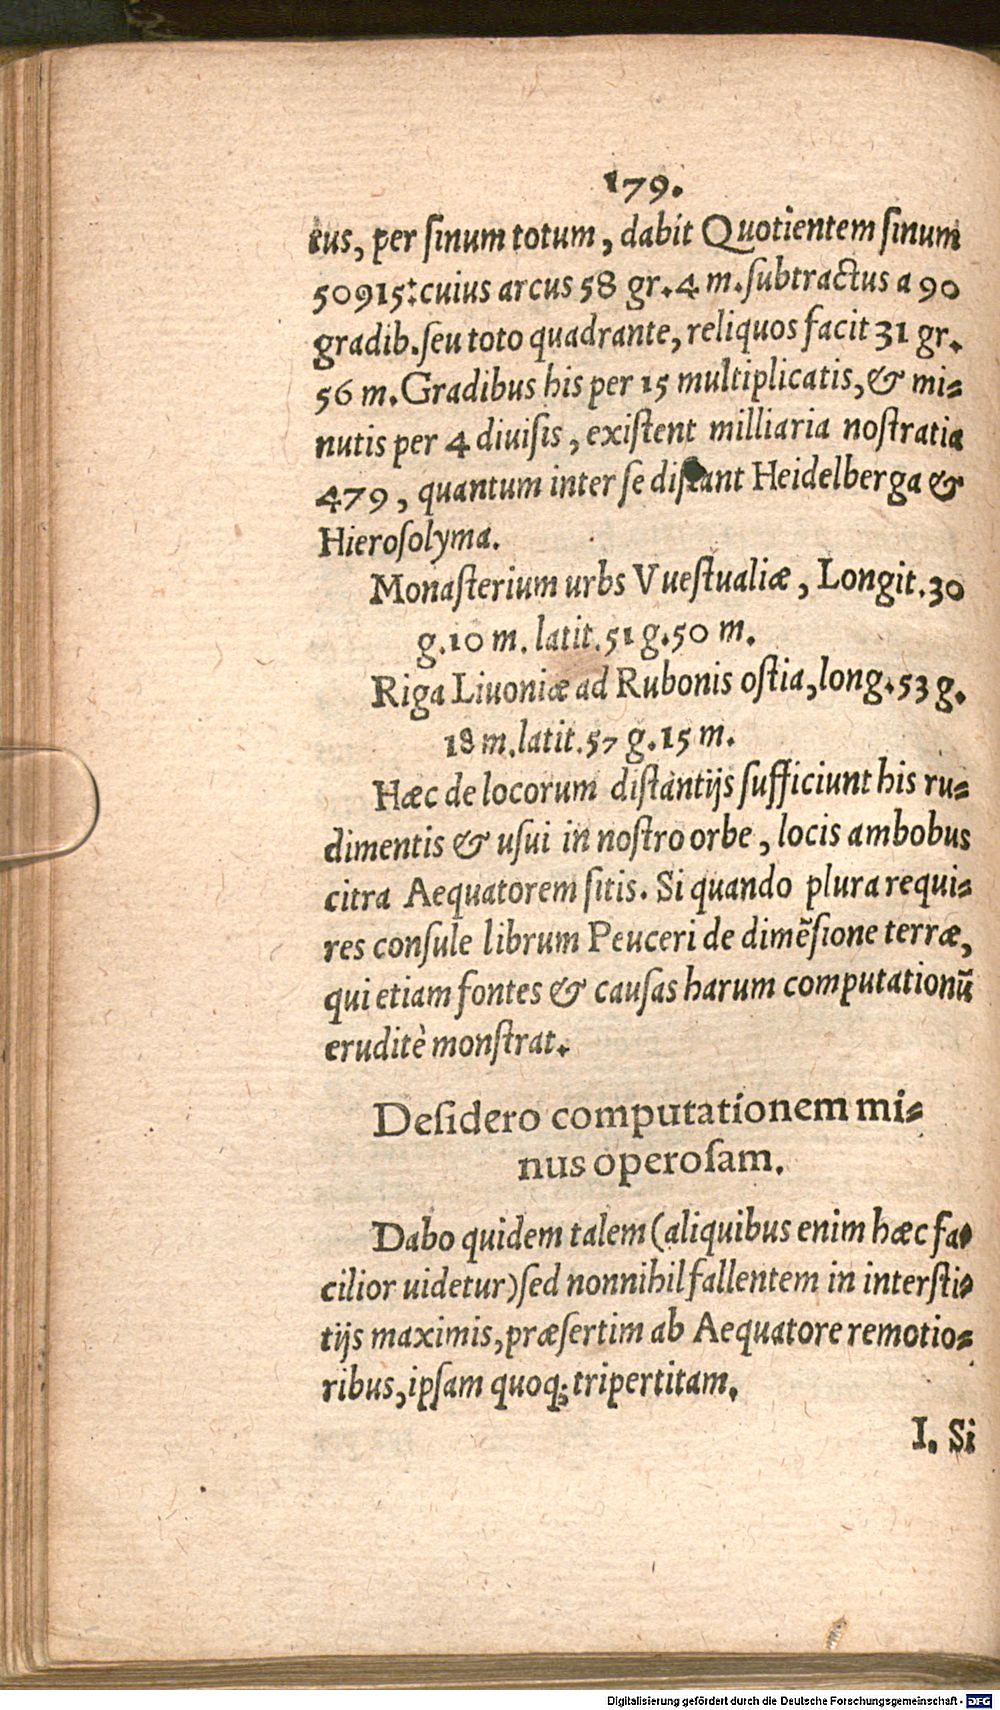 179.
eus, per ſinum totum, dabit Quotientem ſinum
50915: cuius arcus 58 gr. 4 m. ſubtractus a 90
gradib. ſeu toto quadrante, reliquos facit 31 gr.
56 m. Gradibus his per 15 multiplicatis, & mi-
nutis per 4 diuiſis, exiſtent milliaria noſtratia
479, quantum inter ſe diſtant Heidelberga &
Hieroſolyma.
Monaſterium urbs Vueſtualiæ, Longit. 30
g. 10 m. latit. 51 g. 50 m.
Riga Liuoniæ ad Rubonis oſtia, long. 53 g.
18 m. latit. 57 g. 15 m.
Hæc de locorum diſtantijs ſufficiunt his ru-
dimentis & uſui in noſtro orbe, locis ambobus
citra Aequatorem ſitis. Si quando plura requi-
res conſule librum Peuceri de dimẽſione terræ,
qui etiam fontes & cauſas harum computationũ
eruditè monſtrat.
Deſidero computationem mi-
nus operoſam.
Dabo quidem talem (aliquibus enim hæc fa-
cilior uidetur) ſed nonnihil fallentem in interſti-
tijs maximis, præſertim ab Aequatore remotio-
ribus, ipſam quoq; tripertitam.
I. Si
Digitalisierung gefördert durch die Deutsche Forschungsgemeinschaft - DFG